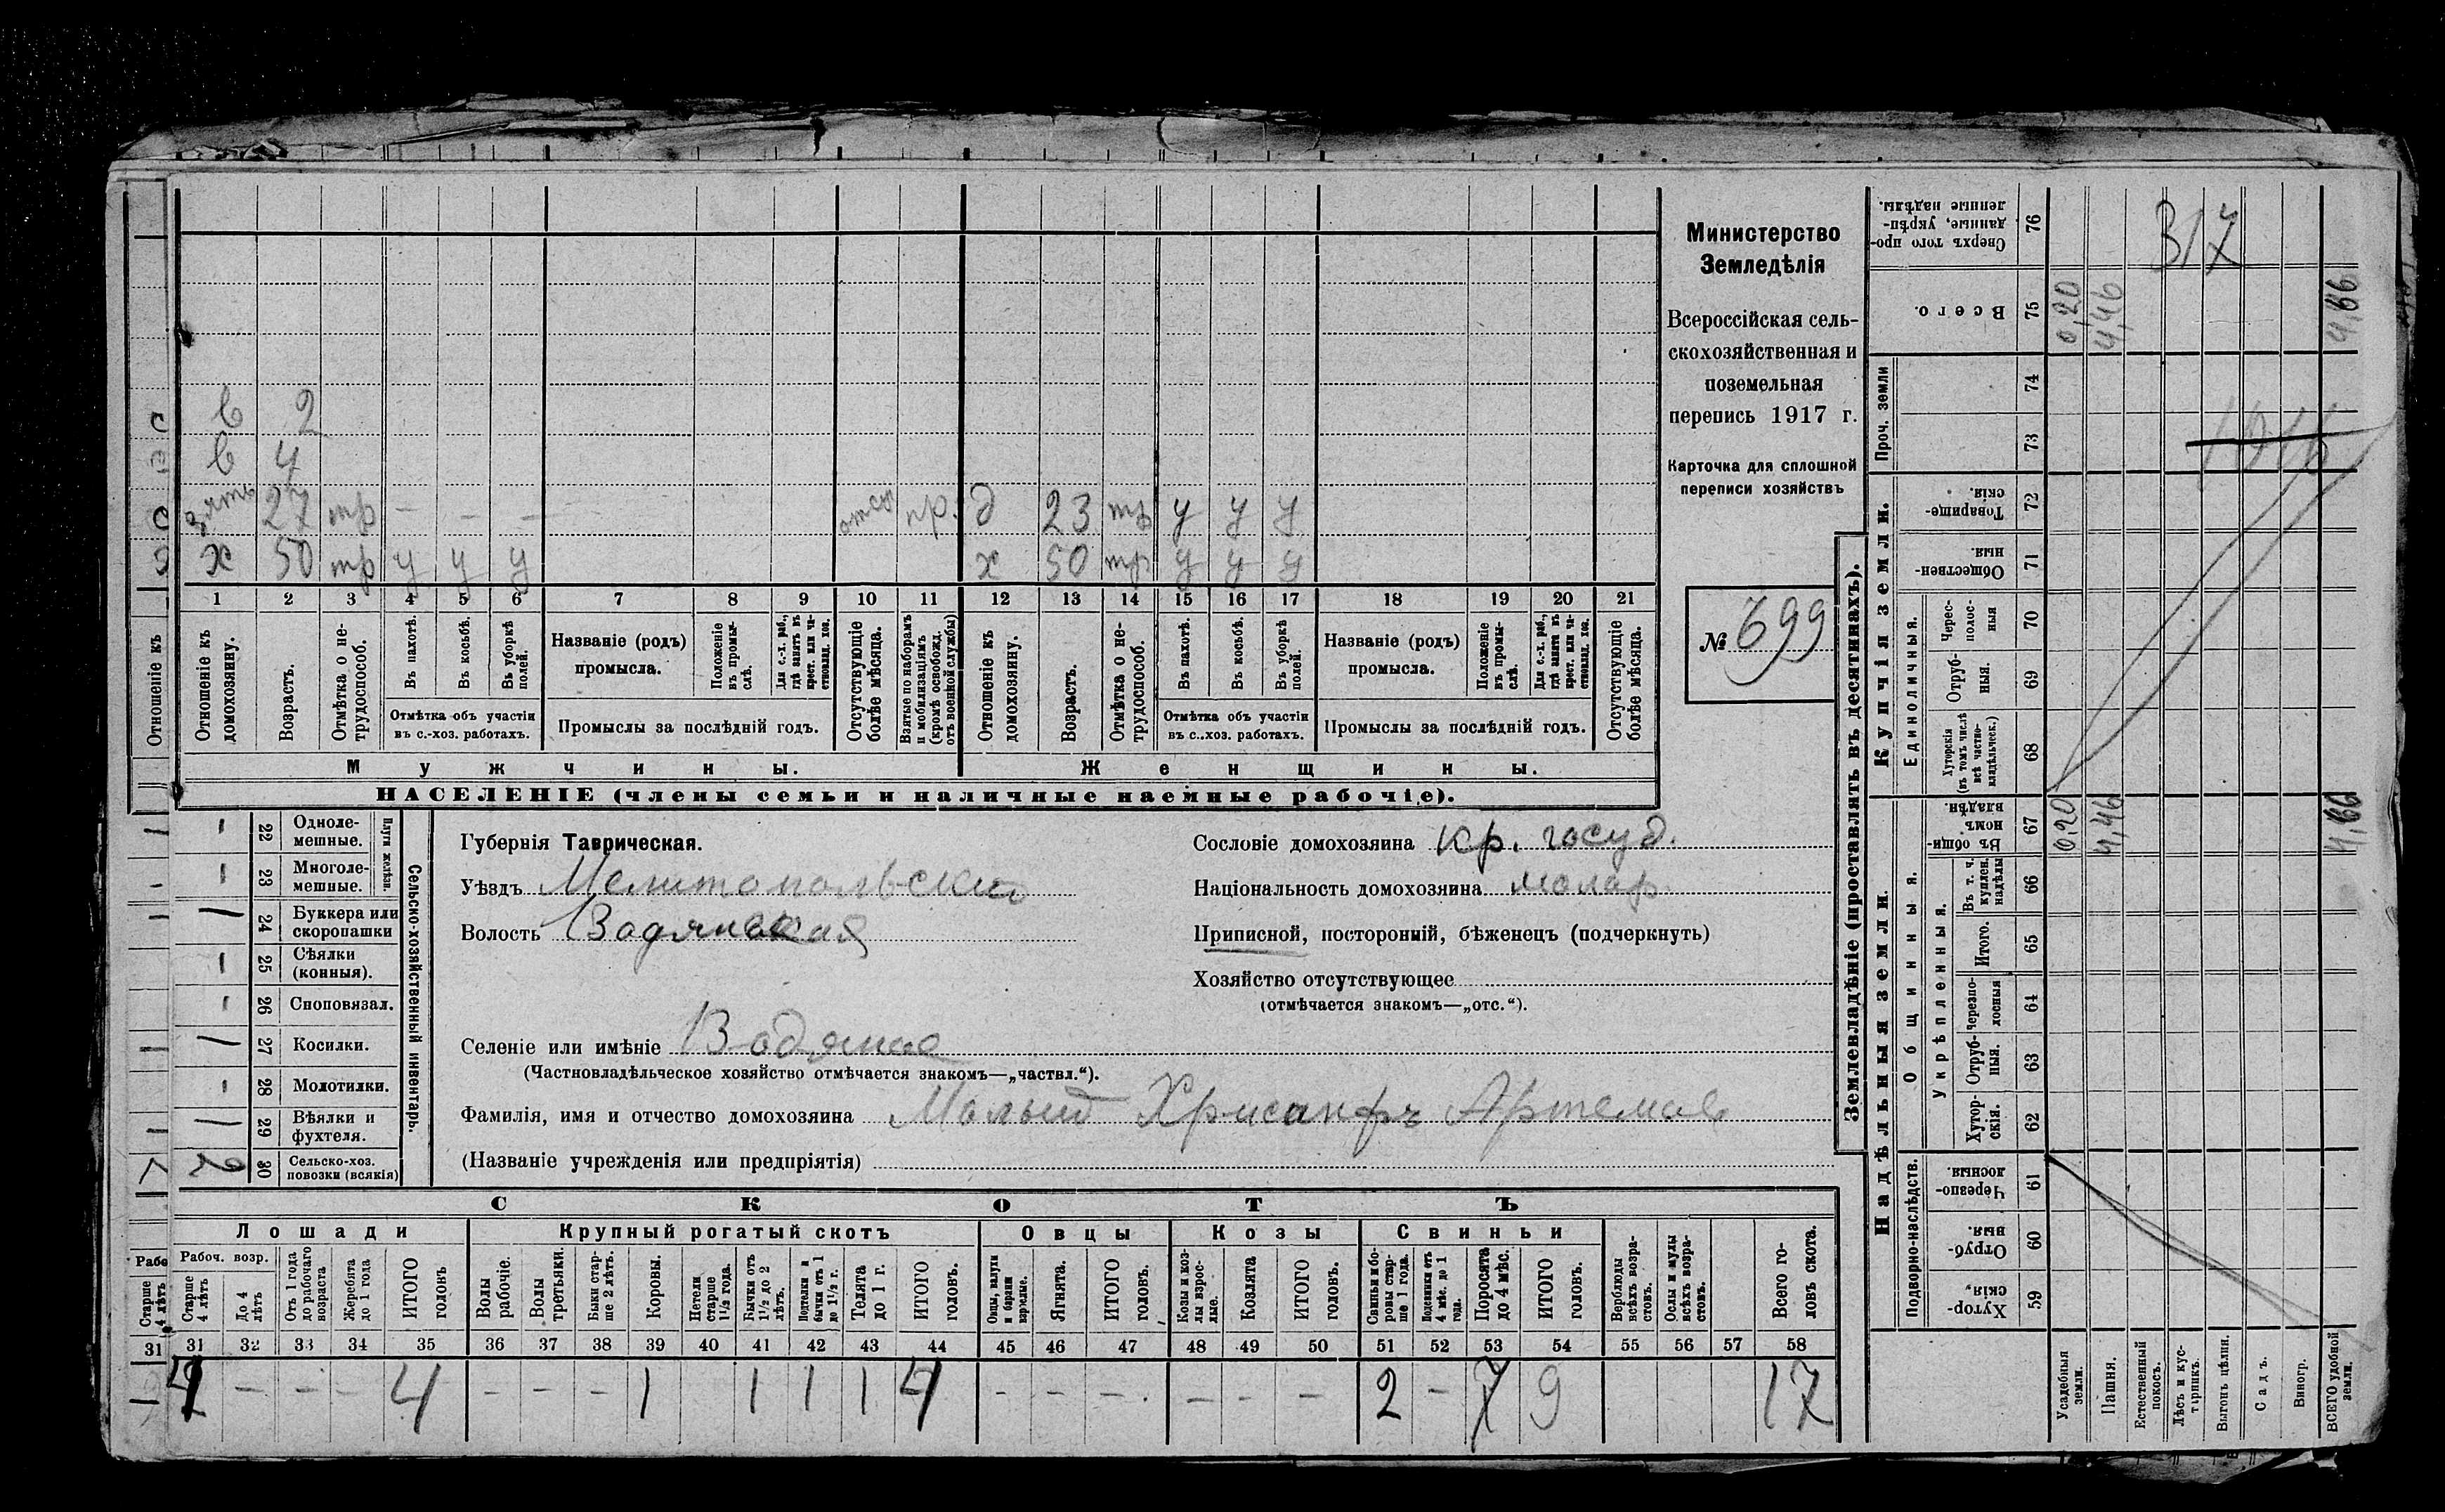 в 2
в 4
зять 27 тр - - - отс пр. д 23 тр у у у
х 50 тр у у у х 50 тр у у у
1 2 3 4 5 6 7 8 9 10 11 12 13 14 15 16 17 18 19 20 21
Отношеніе къ
Отношеніе къ домохозяину.
Возрастъ.
Отмѣтка о не-трудоспособ.
Въ пахотѣ.
Въ косьбѣ.
Въ уборкѣ полей.
Отмѣтка объ участіи
въ с.-хоз. работахъ.
Названіе (родъ)
промысла.
Положеніе въ промы-слѣ.
Для с.-х. раб., гдѣ занятъ въ крест. или ча-стновлад. хоз.
Промыслы за послѣдній годъ.
Отсутствующіе болѣе мѣсяца.
Взятые по наборамъ и мобилизаціямъ (кромѣ освобожд. отъ военной службы)
Отношеніе къ домохозяину.
Возрастъ.
Отмѣтка о не-трудоспособ.
Въ пахотѣ.
Въ косьбѣ.
Въ уборкѣ полей.
Отмѣтка объ участіи
въ с..хоз. работахъ.
Названіе (родъ)
промысла.
Положеніе въ промы-слѣ.
Для с.-х. раб., гдѣ занята въ крест. или ча-стновлад. хоз.
Промыслы за послѣдній годъ.
Отсутствующіе болѣе мѣсяца.
Мужчины.
Женщины.
НАСЕЛЕНІЕ (члены семьи и наличные наемные рабочіе).
Министерство
Земледѣлія
Всероссійская сель-
скохозяйственная и
поземельная
перепись 1917 г.
Карточка для сплошной
переписи хозяйствъ
№ 699
Сельско-хозяйственный инвентарь.
Плуги желѣзн.
- 22 Одноле-мешные.
- 23 Многоле-мешные.
1 24 Буккера или скоропашки
1 25 Сѣялки (конныя).
- 26 Сноповязал.
1 27 Косилки.
- 28 Молотилки.
1 29 Вѣялки и фухтеля.
2 30 Сельско-хоз. повозки (всякія)
Губернія Таврическая.
Уѣздъ Мелитопольский
Волость Водянская
Селеніе или имѣніе Водяное
(Частновладѣльческое хозяйство отмѣчается знакомъ—„частвл.“).
Фамилія, имя и отчество домохозяина Малый Хрисанфъ Артемов
(Названіе учрежденія или предпріятія)
Сословіе домохозяина кр. госуд.
Національность домохозяина малор.
Приписной, посторонній, бѣженецъ (подчеркнуть)
Хозяйство отсутствующее
(отмѣчается знакомъ—„отс.“).
СКОТЪ
Лошади
Крупный рогатый скотъ
Овцы
Козы
Свиньи
Рабоч. возр.
Старше 4 лѣтъ
До 4 лѣтъ
Отъ 1 года до рабочаго возраста
Жеребята до 1 года
ИТОГО головъ
Волы рабочіе.
Волы третьяки.
Быки стар-ше 2 лѣтъ.
Коровы.
Нетели старше 1½ года.
Бычки отъ 1½ до 2 лѣтъ.
Подтелки и бычки отъ 1 до 1½ г.
Телята до 1 г.
ИТОГО головъ.
Овцы, валухи и бараны взрослые.
Ягнята.
ИТОГО головъ.
Козы и коз-лы взрос-лые.
Козлята
ИТОГО головъ.
Свиньи и бо-ровы стар-ше 1 года.
Подсвинки отъ 4 мѣс. до 1 года.
Поросята до 4 мѣс.
ИТОГО головъ.
Верблюды всѣхъ возра-стовъ.
Ослы и мулы всѣхъ возра-стовъ.
Всего го-ловъ скота.
Рабо
Старше 4 лѣтъ
31
31 32 33 34 35 36 37 38 39 40 41 42 43 44 45 46 47 48 49 50 51 52 53 54 55 56 57 58
4 - - - 4 - - - 1 1 1 1 4 - - - - - - 2 - 7 9 17
Землевладѣніе (проставлять въ десятинахъ).
Сверхъ того про-данные, укрѣп-ленные надѣлы. 76
317
Всего. 75 0,20 4,46 4,66
Проч. земли
74
73
Купчія земли.
Товарище-скія. 72
Обществен-ныя. 71
Единоличныя.
Черес-полос-ныя 70
Отруб-ныя. 69
Хуторскія (въ томъ числѣ всѣ частно-владѣльческ.) 68
Надѣльныя земли.
Общинныя.
Въ общи-номъ владѣн. 67 0,20 4,46 4,66
Укрѣпленныя.
Въ т. ч. куплен. надѣлы 66
Итого. 65
Черезпо-лосныя 64
Отруб-ныя. 63
Хутор-скія. 62
Подворно-наслѣдств.
Черезпо-лосныя 61
Отруб-ныя. 60
Хутор-скія, 59
Усадебныя земли.
Пашня.
Естественный покосъ.
Лѣсъ и кус-тарникъ.
Выгонъ цѣлин.
Садъ.
Виногр.
ВСЕГО удобной земли.